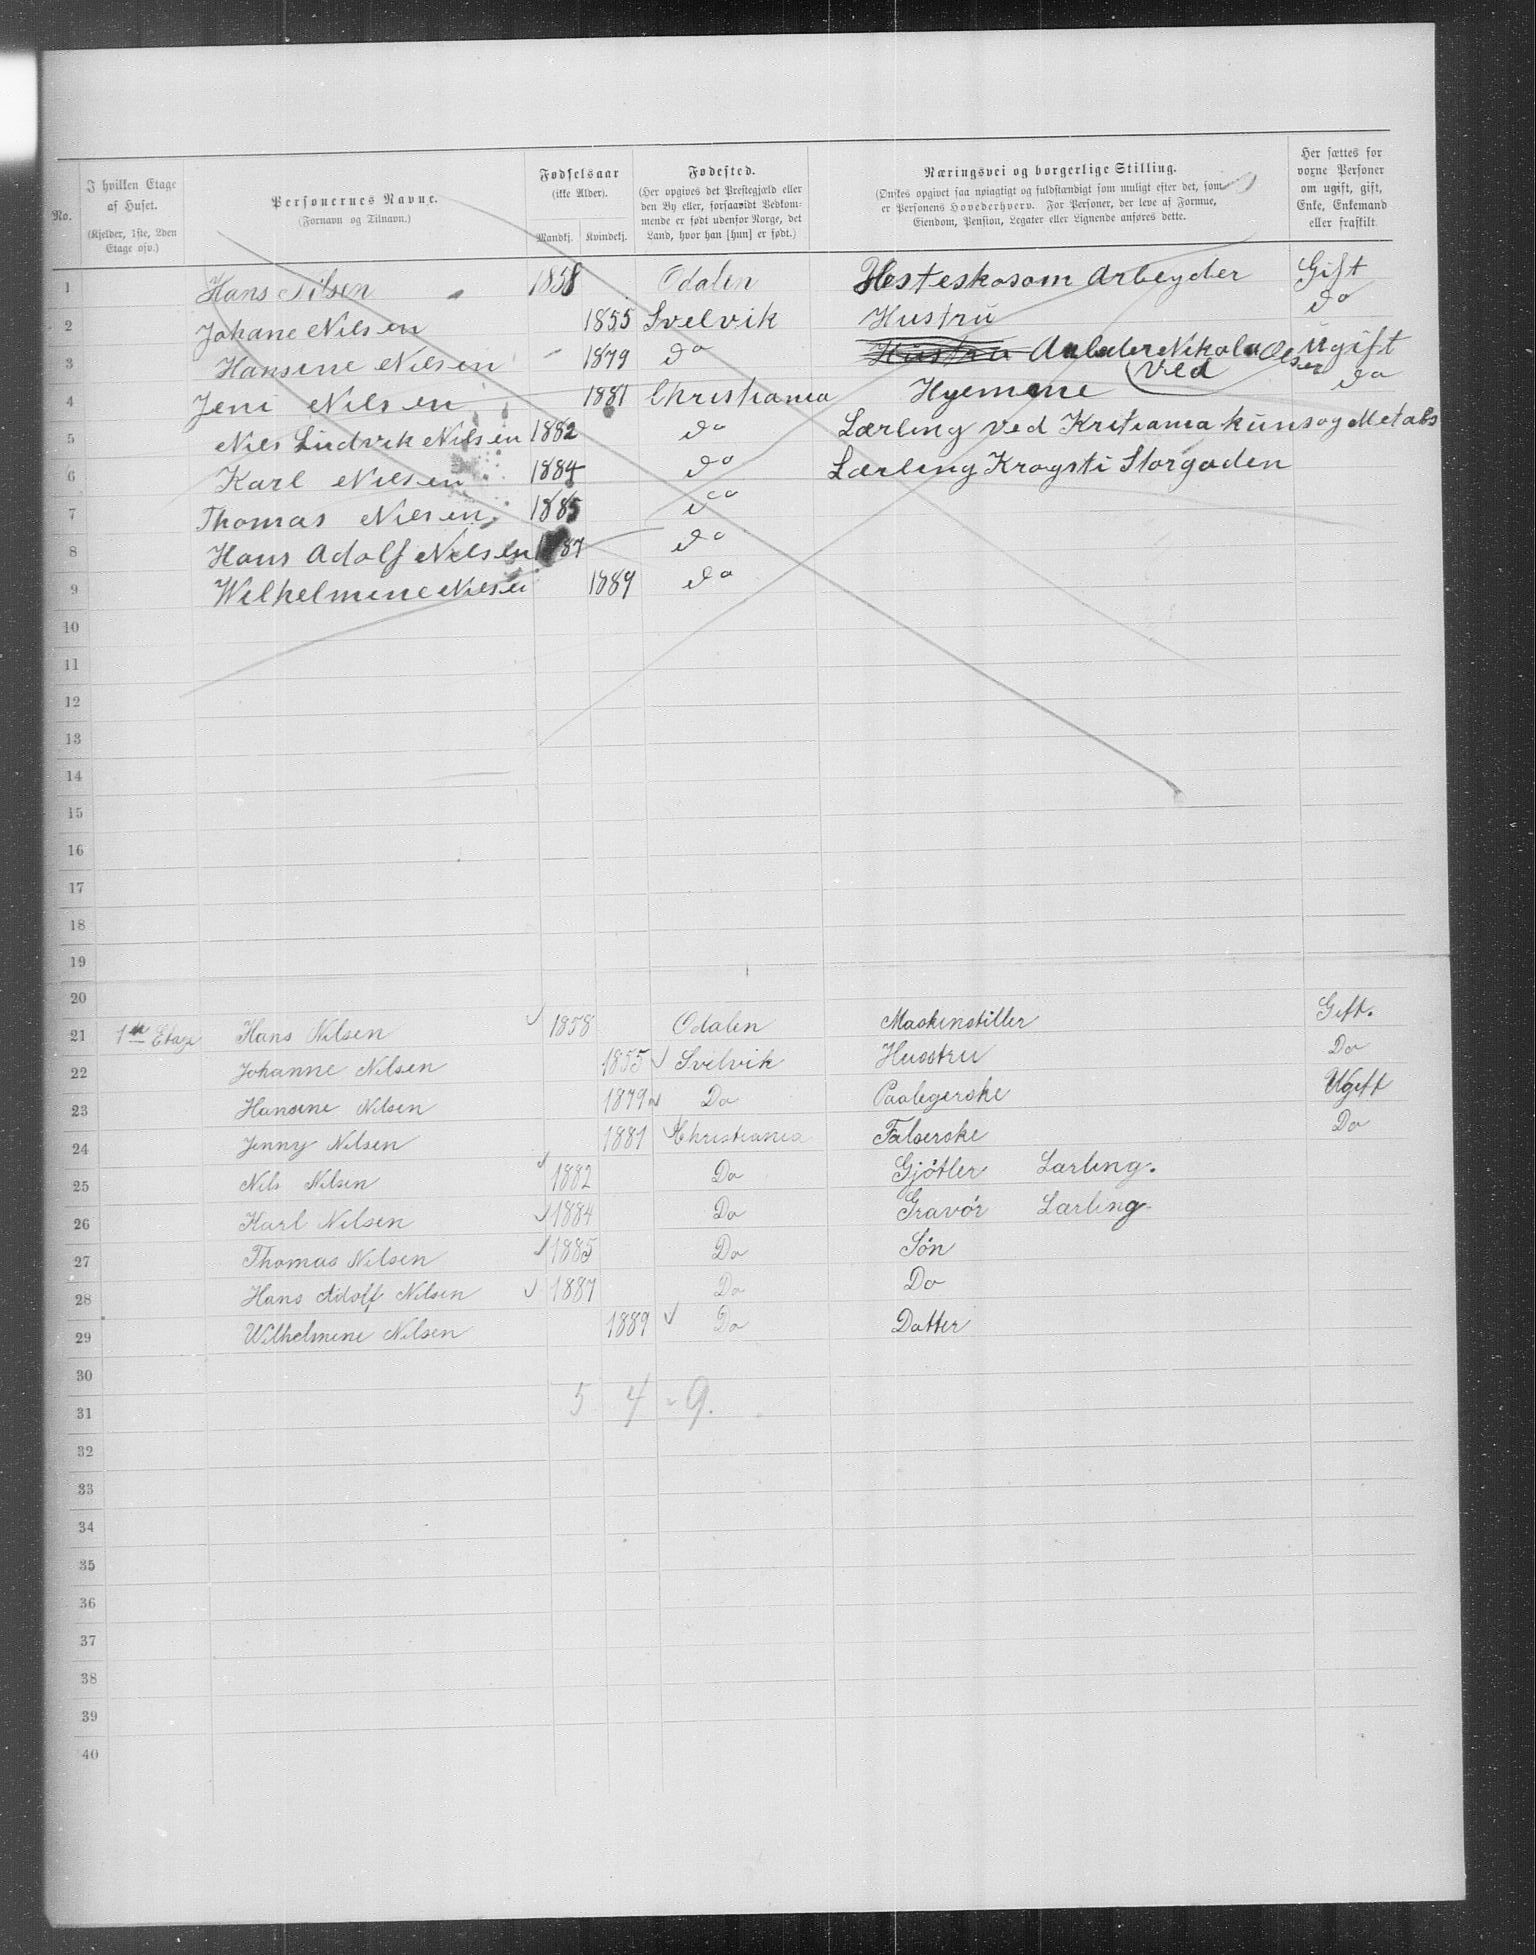 No.
I hvilken Etage af Huset.
(Kjelder, 1ste, 2den Etage osv.)
Personernes Navne.
(Fornavn og Tilnavn.)
Fødselsaar
(ikke Alder).
Mandkj. Kvindekj.
Fødested.
(Her opgives det Prestegjæld eller
den By eller, forsaavidt Vedkom-
mende er født udenfor Norge, det
Land, hvor han [hun] er født.)
Næringsvei og borgerlige Stilling.
(Ønskes opgivet saa nøiagtigt og fuldstændigt som muligt efter det, som
er Personens Hovederhverv. For Personer, der leve af Formue,
Eiendom, Pension, Legater eller Lignende anføres dette.
Her sættes for
voxne Personer
om ugift, gift,
Enke, Enkemand
eller fraskilt.
1 Hans Nilsen 1858 Odalen Hesteskosøm Arbeyder Gift
2 Johane Nilsen 1855 Svelvik Hustru do
3 Hansine Nilsen 1879 do Hustru Nikolai Olsen Ugift
ved
4 Jeni Nilsen 1881 Christiania Hjemme do
5 Nils Ludvik Nilsen 1882 do Lærling ved Kritiania kunsog Metals
6 Karl Nilsen 1884 do Lærling Krogsti Storgaden
7 Thomas Nilsen 1885 do
8 Hans Adolf Nilsen 1887 do
9 Wilhelmine Nilsen 1889 do
10
11
12
13
14
15
16
17
18
19
20
21 1ste Etage Hans Nilsen 1858 Odalen Maskinstiller Gift.
22 Johanne Nilsen 1855 Svelvik Husstru Do
23 Hansine Nilsen 1879 Do Paalegerske Ugift
24 Jenny Nilsen 1881 Christiania Falserske Do
25 Nils Nilsen 1882 Do Gjötler Lærling.
26 Karl Nilsen 1884 Do Gravör Lærling
27 Thomas Nilsen 1885 Do Sön
28 Hans Adolf Nilsen 1887 Do Do
29 Wilhelmine Nilsen 1889 Do Datter
30
31 5 4 = 9.
32
33
34
35
36
37
38
39
40